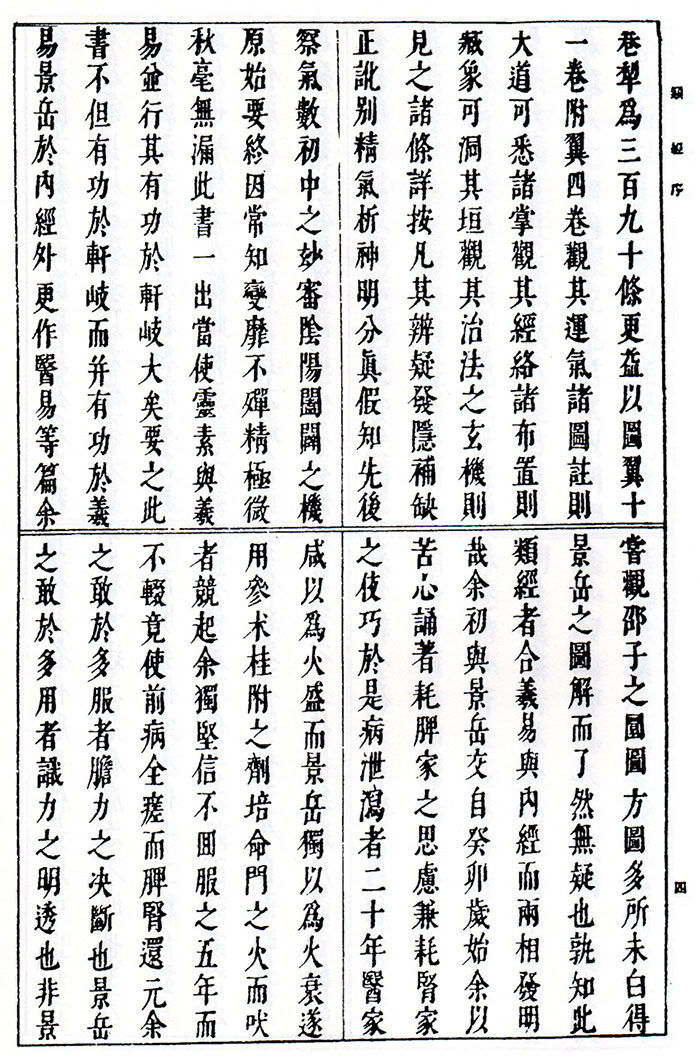 類經序
卷犁爲三百九十條更益以圖翼十
一卷附翼四卷觀其運氣諸圖註則
大道可悉諸掌觀其經絡諸布置則
藏象可洞其垣觀其治法之玄機則
見之諸條詳按凡其辨疑發隱補缺
正訛别精氣析神明分眞假知先後
察氣數初中之妙審陰陽闔闢之機
原始要終因常知變靡不殫精極微
秋毫無漏此書一出當使靈素與羲
易並行其有功於軒岐大矣要之此
書不但有功於軒岐而并有功於羲
易景岳於內經外更作醫易等篇余
嘗觀邵子之圓圖方圖多所未白得
景岳之圖解而了然無疑也孰知此
類經者合羲易與內經而兩相發明
哉余初與景岳交自癸卯歲始余以
苦心誦著耗脾家之思慮兼耗腎家
之伎巧於是病泄瀉者二十年醫家
咸以爲火盛而景岳獨以爲火衰遂
用參术桂附之劑培命門之火而吠
者競起余獨堅信不回服之五年而
不輟竟使前病全瘥而脾腎還元余
之敢於多服者膽力之决斷也景岳
之敢於多用者識力之明透也非景
四